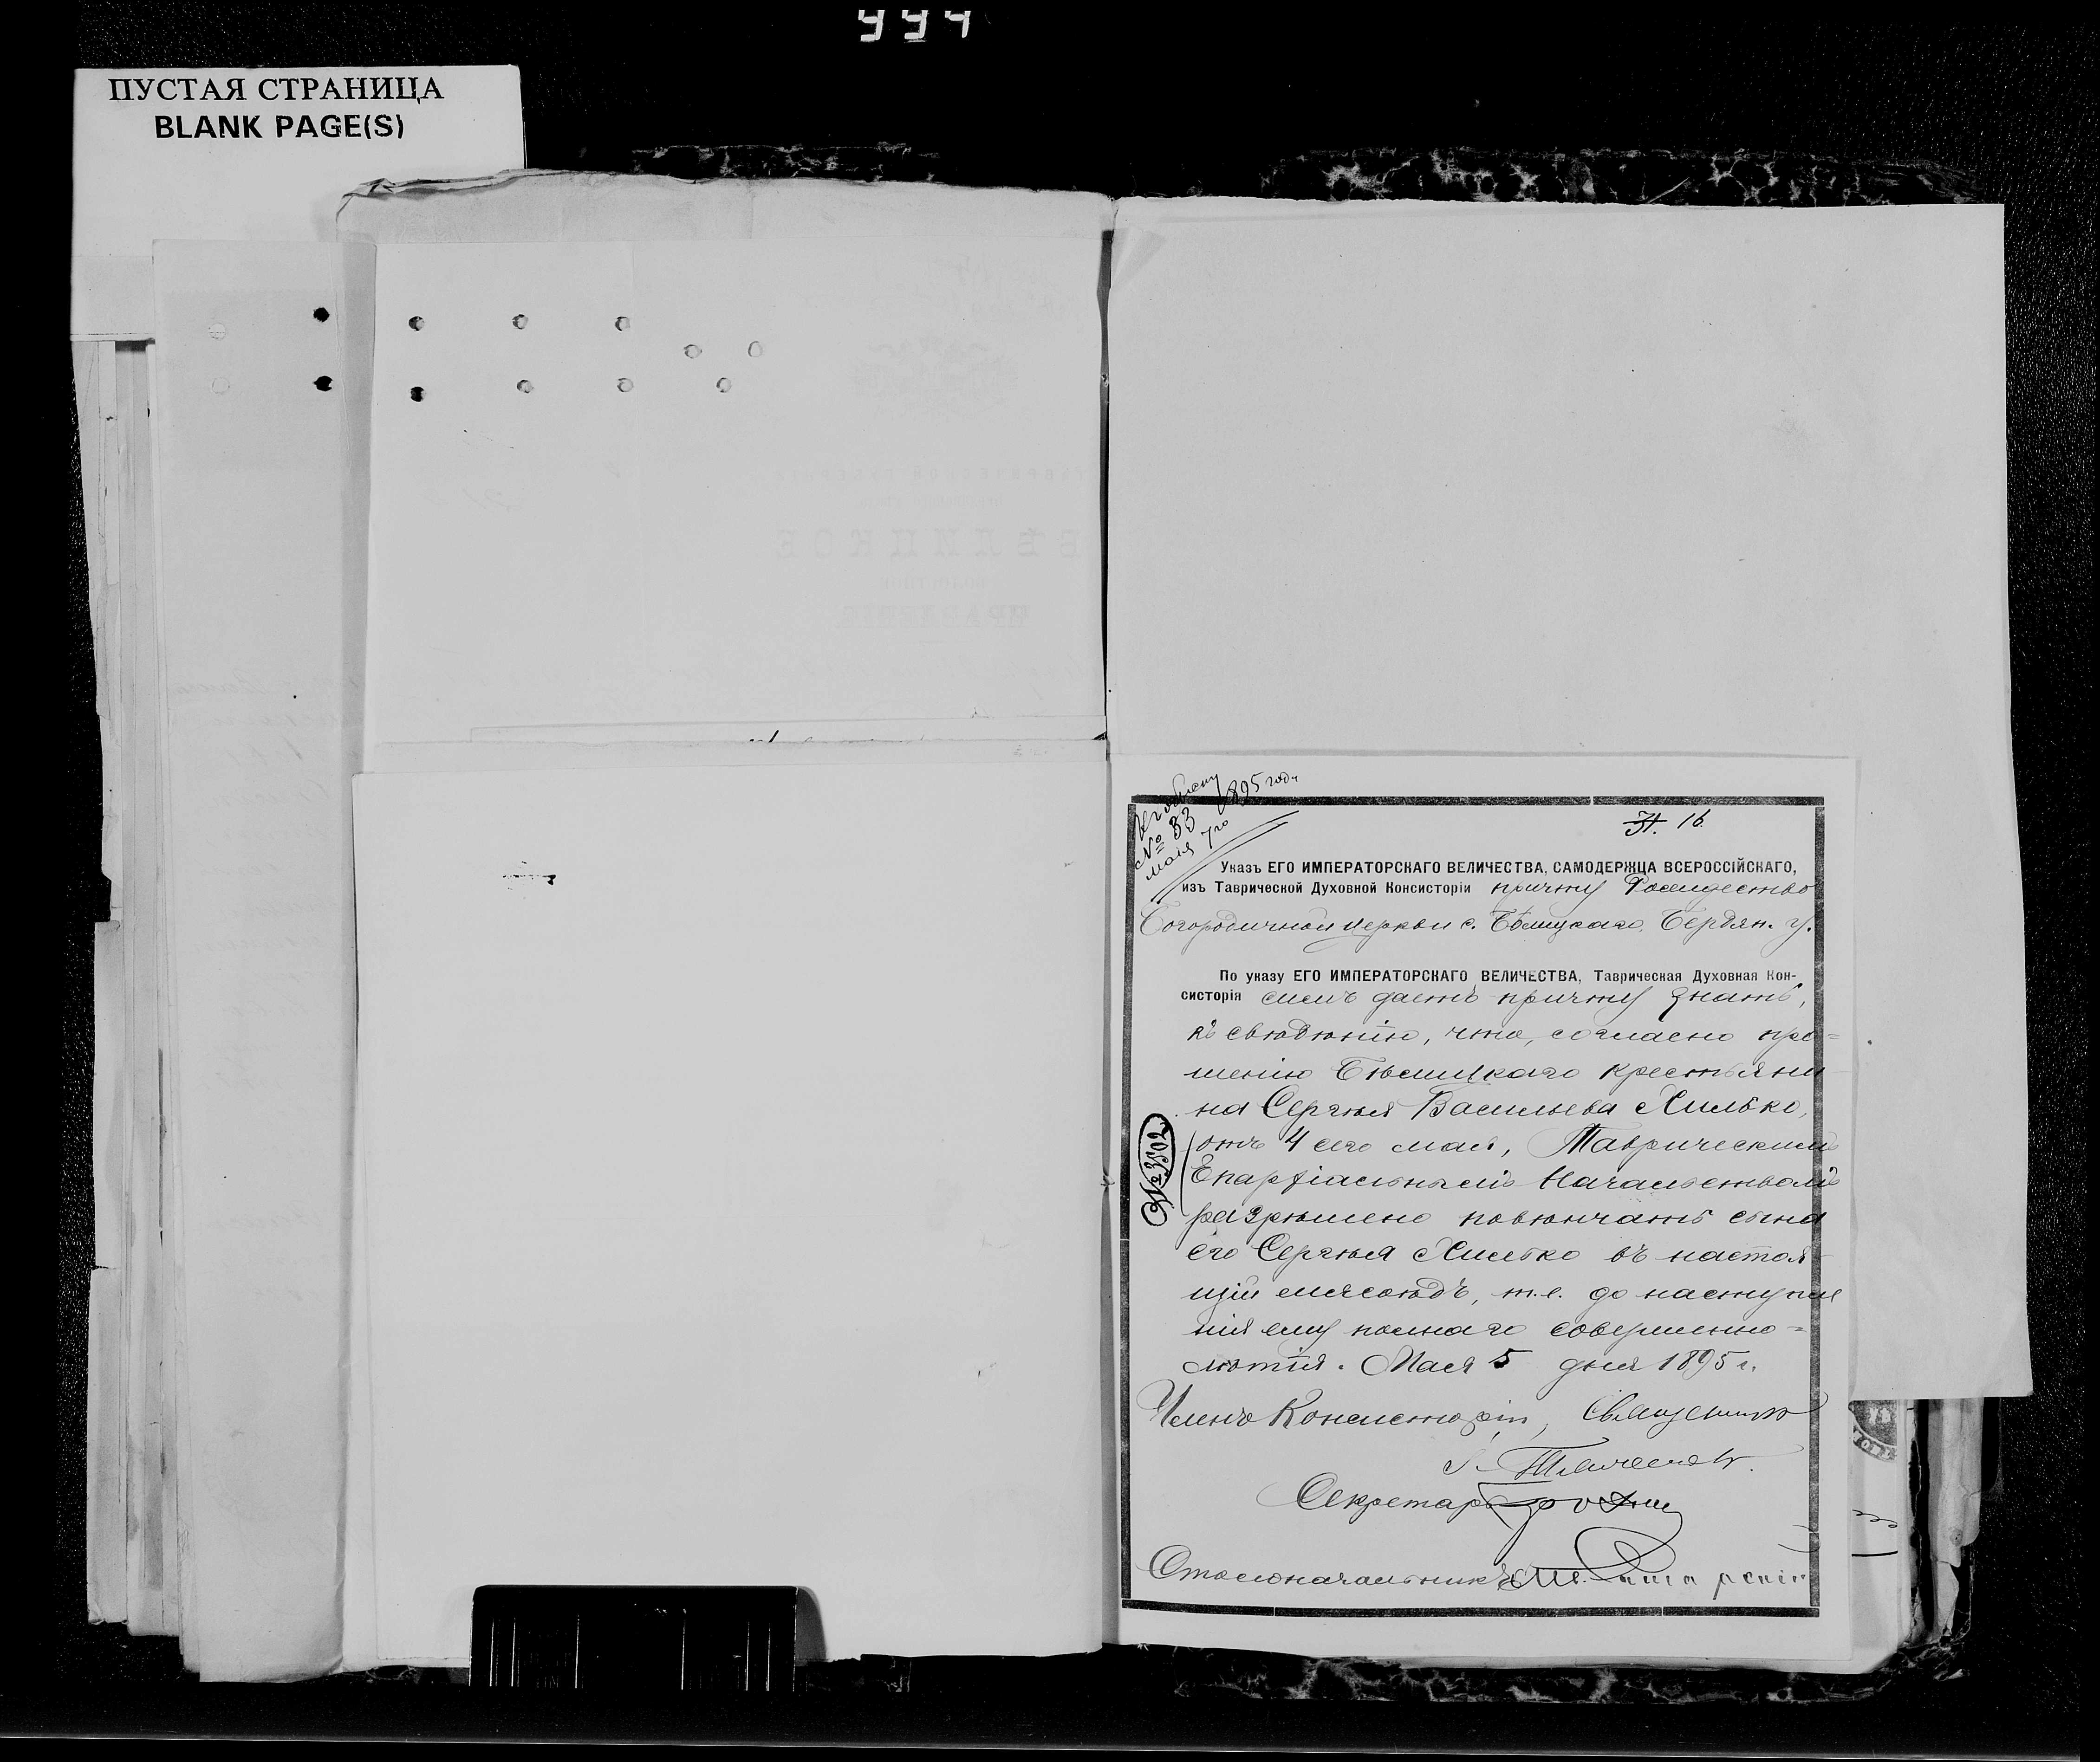 994
ПУСТАЯ СТРАНИЦА
BLANK PAGE(S)
№ 33
мая 7го 1895 года
31. 16.
Указъ ЕГО ИМПЕРАТОРСКАГО ВЕЛИЧЕСТВА, САМОДЕРЖЦА ВСЕРОССІЙСКАГО,
изъ Таврической Духовной Консисторіи причту Рождество
Богородичной церкви с. Бѣлицкаго, Бердян. у.
По указу ЕГО ИМПЕРАТОРСКАГО ВЕЛИЧЕСТВА, Таврическая Духовная Кон-
систорія симъ даетъ причту знать,
къ свѣдѣнію, что, согласно про=
шенію Бѣлицкаго крестьяни
на Сергѣя Васильева Хилько,
отъ 4 сего мая, Таврическимъ
Епархіальнымъ Начальствомъ
разрѣшено повѣнчать сына
его Сергѣя Хилько въ настоя
щій мясоѣдъ, т.е. до наступле
нія ему полнаго совершенно=
лѣтія. Мая 5 дня 1895 г.
№ 3502
Членъ Консисторіи, Священникъ
Секретарь
Столоначальникъ